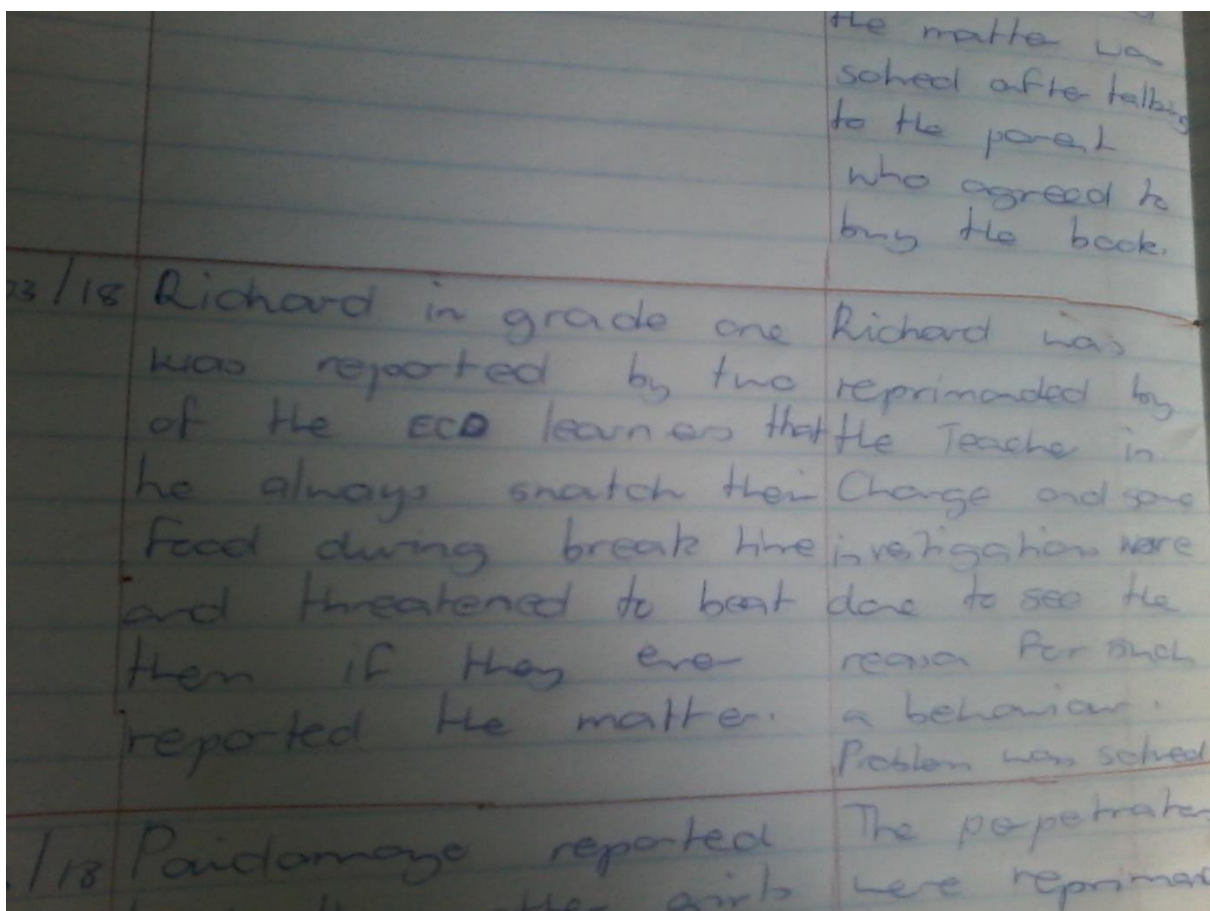 the matter was
solved after talking
to the parent
who agreed to
buy the book.
23/18
Richard in grade one
was reported by two
of the ECD learners that
he always snatch their
food during break time
and threatened to beat
them if they ever
reported the matter.
Richard was
reprimanded by
the Teacher in
Charge and some
investigations were
done to see the
reason for such
a behaviour.
Problem was solved
/18
Paidamoyo reported
girls
The perpetrators
were